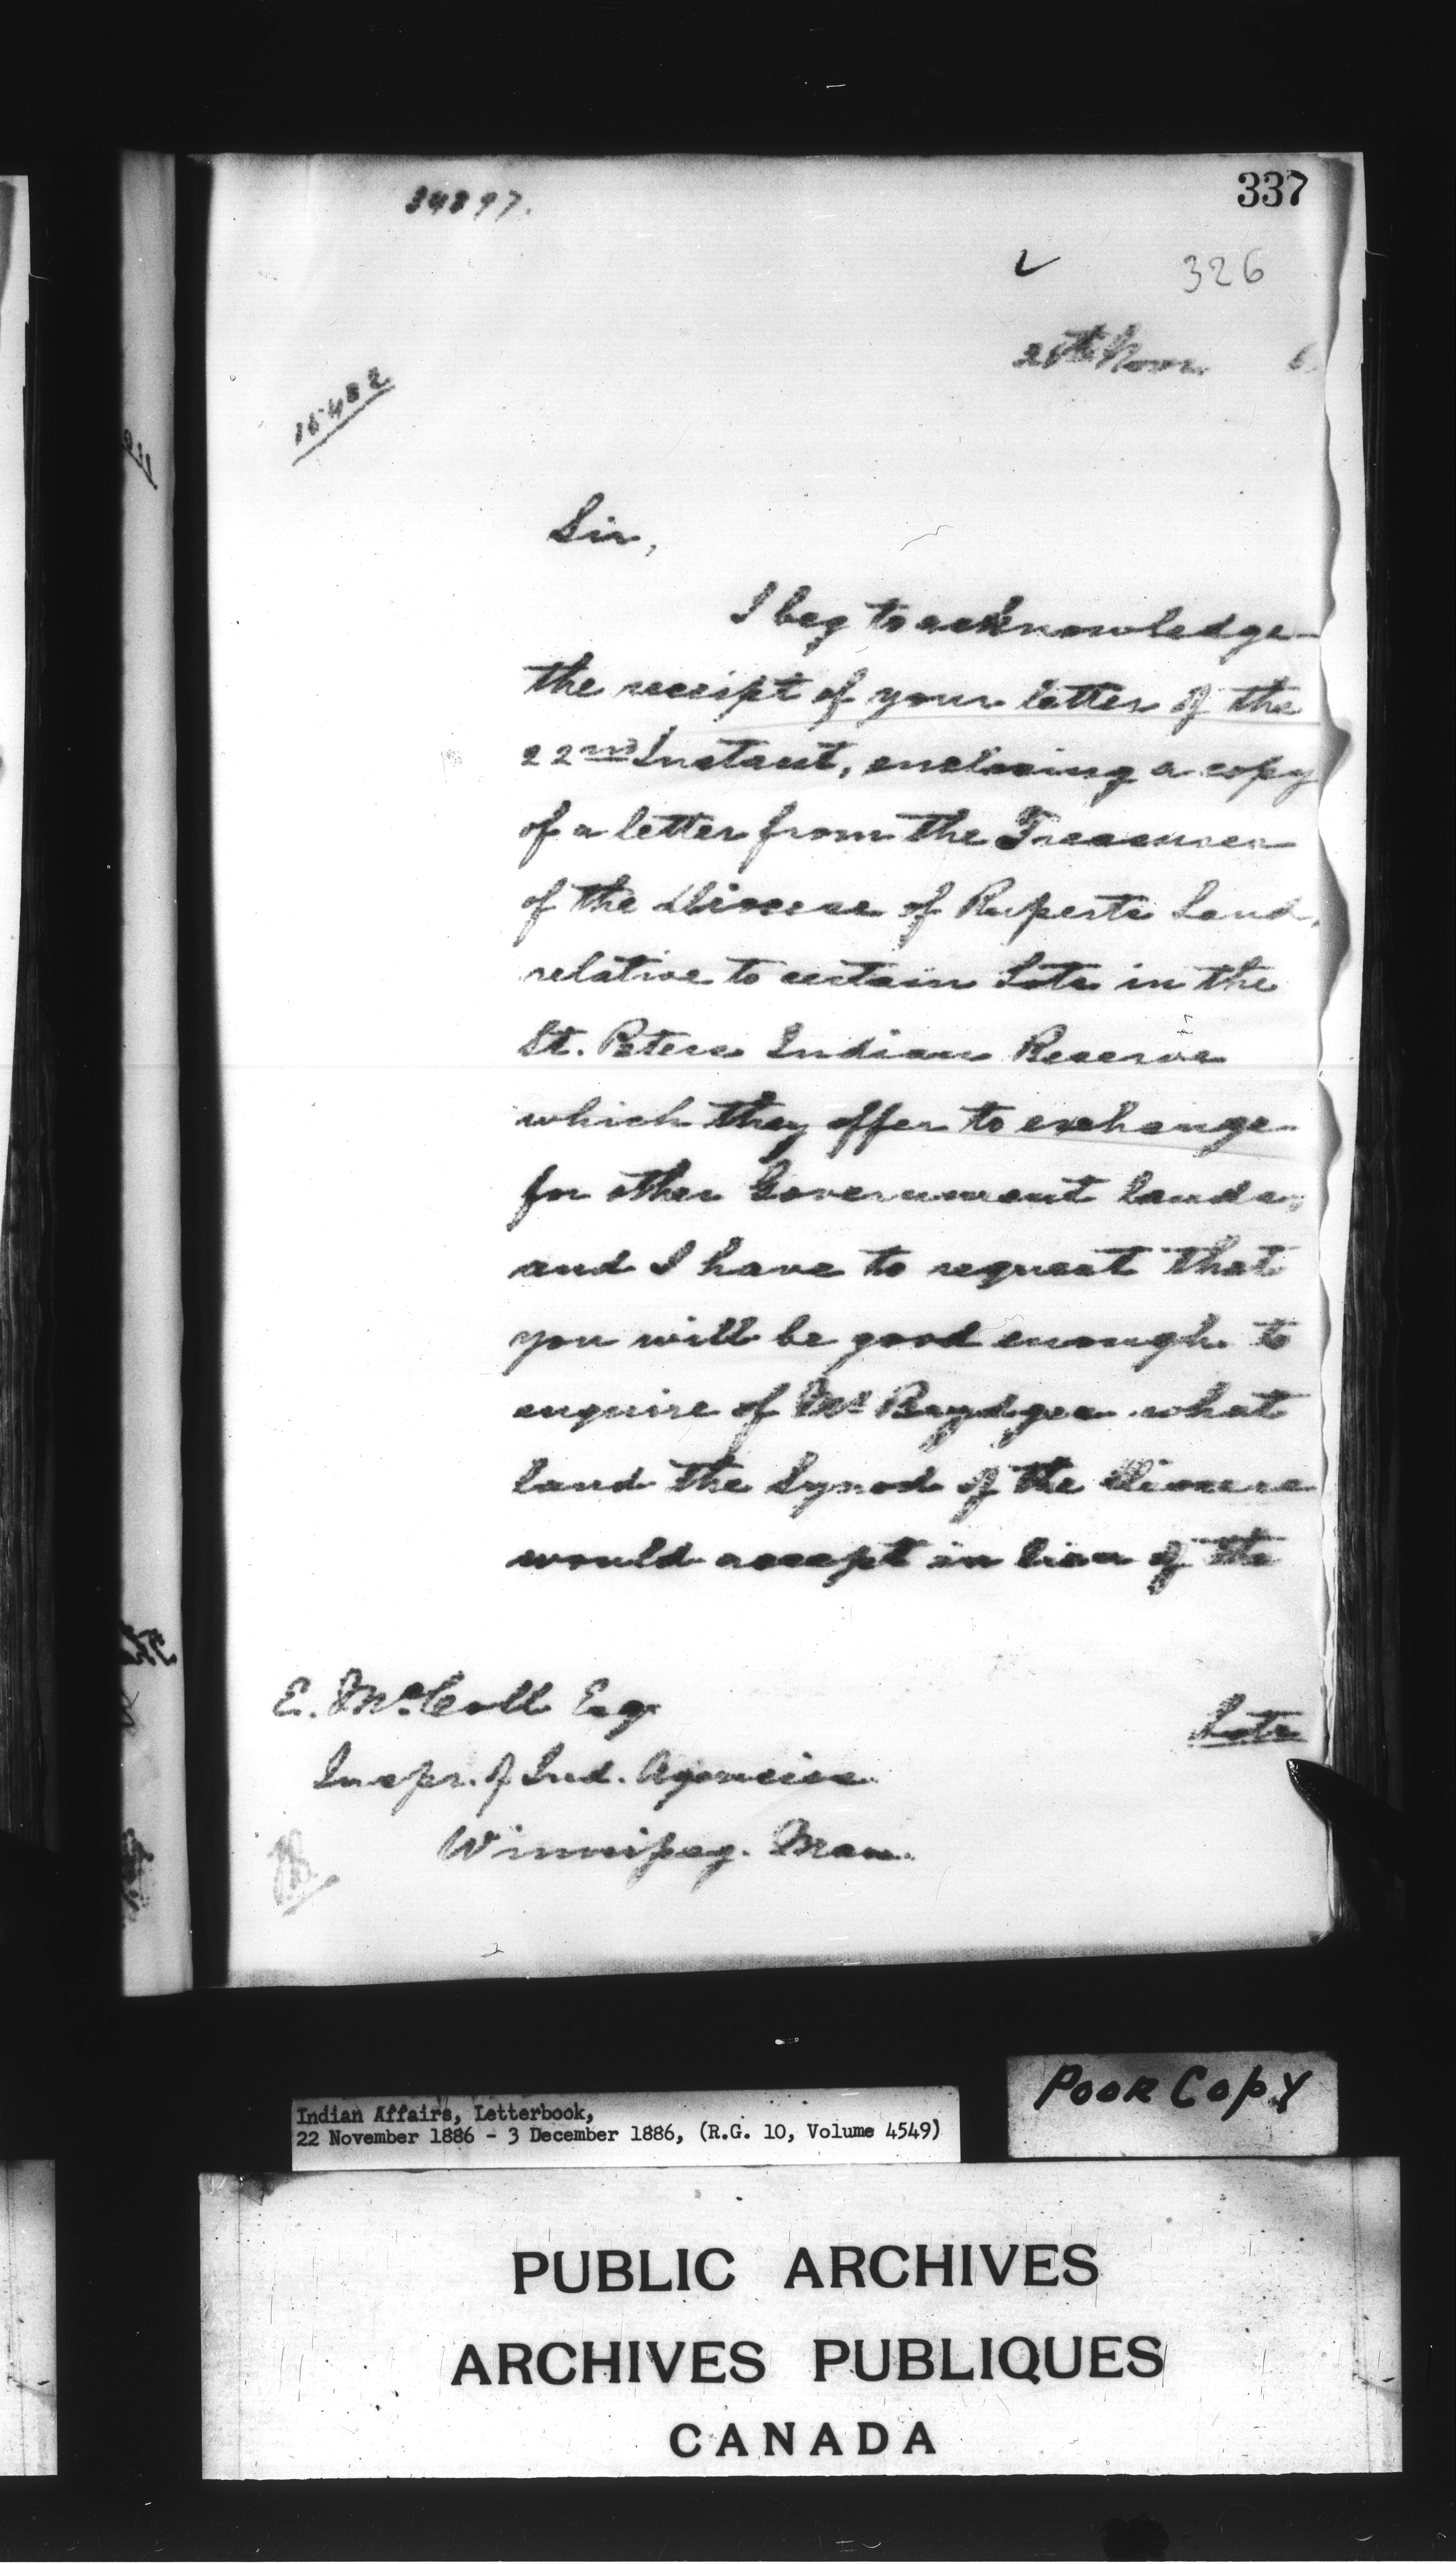 34897.
337
326
Novr 6
15482
Sir,
I beg to acknowledge
the receipt of your letter of the
22nd Instant, enclosing a copy
of a letter from the Treasurer
of the Diocese of Ruperts Land,
relative to certain Lots in the
St. Peters Indian Reserve
which they offer to exchange
for other Government lands,
and I have to request that
you will be good enough to
enquire of Mr Brydges what
land the Synod of the Diocese
would accept in lieu of the
Lots
E. McColl Esq
Inspr. of Ind. Agencies
Winnipeg. Man.
Poor Copy
Indian Affairs, Letterbook,
22 November 1886 - 3 December 1886, (R.G. 10, Volume 4549)
PUBLIC ARCHIVES
ARCHIVES PUBLIQUES
CANADA